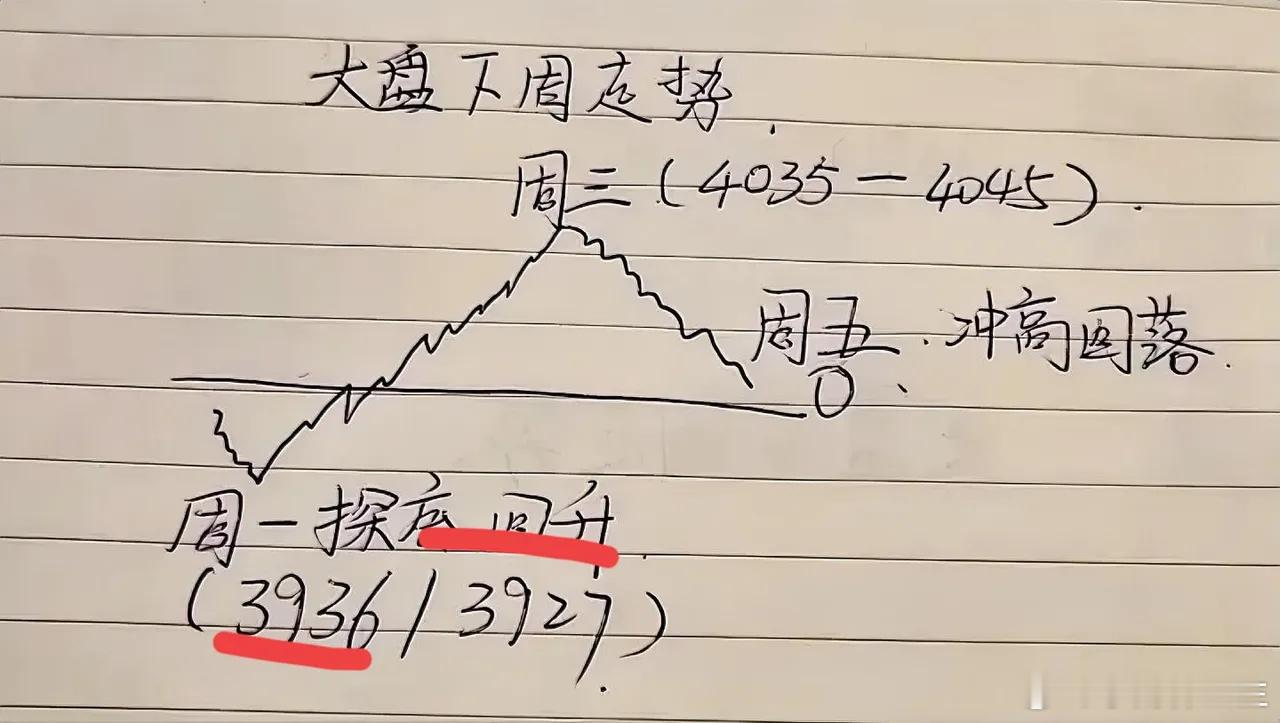 大盘下周走势.
周三(4035—4045).
周五.冲高回落.
0、
周一探底回升.
(3936/3927).